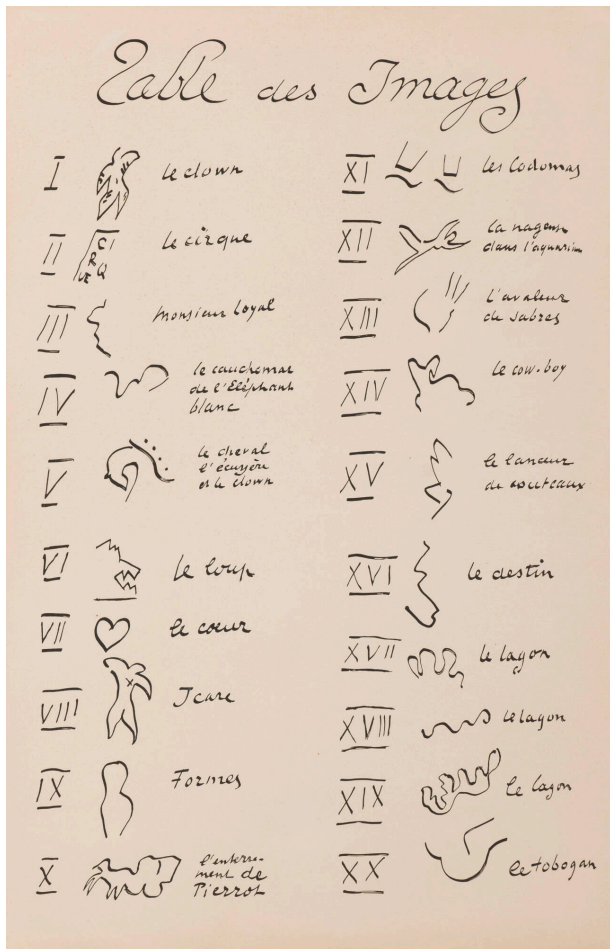 Table des Images
I le clown
II CIRQUE le cirque
III monsieur loyal
IV le cauchemar
de l'Eléphant
blanc
V le cheval
l'écuyère
et le clown
VI le loup
VII le cœur
VIII Icare
IX Formes
X l'enterre-
ment de
Pierrot
XI les Codomas
XII la nageuse
dans l'aquarium
XIII l'avaleur
de sabres
XIV le cow-boy
XV le lanceur
de couteaux
XVI le destin
XVII le lagon
XVIII le lagon
XIX le lagon
XX le tobogan